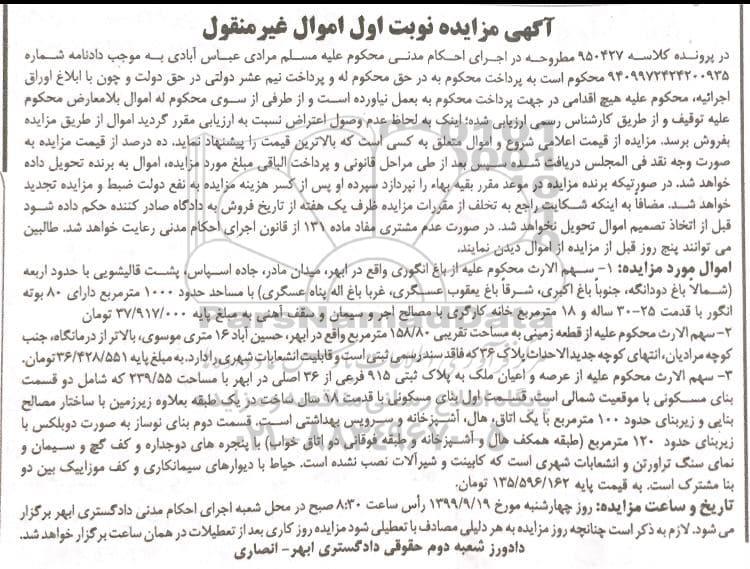 آگهی مزایده نوبت اول اموال غیرمنقول
در پرونده کلاسه ۹۵۰۴۲۷ مطروحه در اجرای احکام مدنی محکوم علیه مسلم مرادی عباس آبادی به موجب دادنامه شماره
۹۴۰۹۹۷۲۴۲۴۲۰۰۹۳۵ محکوم است به پرداخت محکوم به در حق محکوم له و پرداخت نیم عشر دولتی در حق دولت و چون با ابلاغ اوراق
اجرائیه، محکوم علیه هیچ اقدامی در جهت پرداخت محکوم به بعمل نیاورده است و از طرفی از سوی محکوم له اموال بلامعارض محکوم
علیه توقیف و از طریق کارشناس رسمی ارزیابی شده؛ اینک به لحاظ عدم وصول اعتراض نسبت به ارزیابی مقرر گردید اموال از طریق مزایده
بفروش برسد. مزایده از قیمت اعلامی شروع و اموال متعلق به کسی است که بالاترین قیمت را پیشنهاد نماید، ده درصد از قیمت مزایده به
صورت وجه نقد فی المجلس دریافت شده سپس بعد از طی مراحل قانونی و پرداخت الباقی مبلغ مورد مزایده، اموال به برنده تحویل داده
خواهد شد. در صورتیکه برنده مزایده در موعد مقرر بقیه بهاء را نپردازد سپرده او پس از کسر هزینه مزایده به نفع دولت ضبط و مزایده تجدید
خواهد شد. مضافاً به اینکه شکایت راجع به تخلف از مقررات مزایده ظرف یک هفته از تاریخ فروش به دادگاه صادر کننده حکم داده شود
قبل از اتخاذ تصمیم اموال تحویل نخواهد شد. در صورت عدم مشتری مفاد ماده ۱۳۱ از قانون اجرای احکام مدنی رعایت خواهد شد. طالبین
می توانند پنج روز قبل از مزایده از اموال دیدن نمایند.
اموال مورد مزایده: ۱- سهم الارث محکوم علیه از باغ انگوری واقع در ابهر، میدان مادر، جاده اسپاس، پشت قالیشویی با حدود اربعه
(شمالاً باغ دودانگه، جنوباً باغ اکبری، شرقاً باغ یعقوب عسگری، غربا باغ اله پناه عسگری) با مساحد حدود ۱۰۰۰ مترمربع دارای ۸۰ بوته
انگور با قدمت ۲۵-۳۰ ساله و ۱۸ مترمربع خانه کارگری با مصالح آجر و سیمان و سقف آهنی به مبلغ پایه ۳۷/۹۱۷/۰۰۰ تومان
۲- سهم الارث محکوم علیه از قطعه زمینی به مساحت تقریبی ۱۵۸/۸۰ مترمربع واقع در ابهر، حسین آباد ۱۶ متری موسوی، بالاتر از درمانگاه، جنب
کوچه مرادیان، انتهای کوچه جدیدالاحداث پلاک ۳۶ که فاقد سند رسمی ثبتی است و قابلیت انشعابات شهری را دارد. به مبلغ پایه ۳۶/۴۲۸/۵۵۱ تومان.
۳- سهم الارث محکوم علیه از عرصه و اعیان ملک به پلاک ثبتی ۹۱۵ فرعی از ۳۶ اصلی در ابهر با مساحت ۲۳۹/۵۵ که شامل دو قسمت
بنای مسکونی با موقعیت شمالی است. قسمت اول بنای مسکونی با قدمت ۱۸ سال ساخت در یک طبقه بعلاوه زیرزمین با ساختار مصالح
بنایی و زیربنای حدود ۱۰۰ مترمربع با یک اتاق، هال، آشپزخانه و سرویس بهداشتی است. قسمت دوم بنای نوساز به صورت دوبلکس با
زیربنای حدود ۱۲۰ مترمربع (طبقه همکف هال و آشپزخانه و طبقه فوقانی دو اتاق خواب) با پنجره های دوجداره و کف گچ و سیمان و
نمای سنگ تراورتن و انشعابات شهری است که کابینت و شیرآلات نصب نشده است. حیاط با دیوارهای سیمانکاری و کف موزاییک بین دو
بنا مشترک است. به قیمت پایه ۱۳۵/۵۹۶/۱۶۲ تومان.
تاریخ و ساعت مزایده: روز چهارشنبه مورخ ۱۳۹۹/۹/۱۹ رأس ساعت ۸:۳۰ صبح در محل شعبه اجرای احکام مدنی دادگستری ابهر برگزار
می شود. لازم به ذکر است چنانچه روز مزایده به هر دلیلی مصادف با تعطیلی شود مزایده روز کاری بعد از تعطیلات در همان ساعت برگزار خواهد شد.
دادورز شعبه دوم حقوقی دادگستری ابهر- انصاری